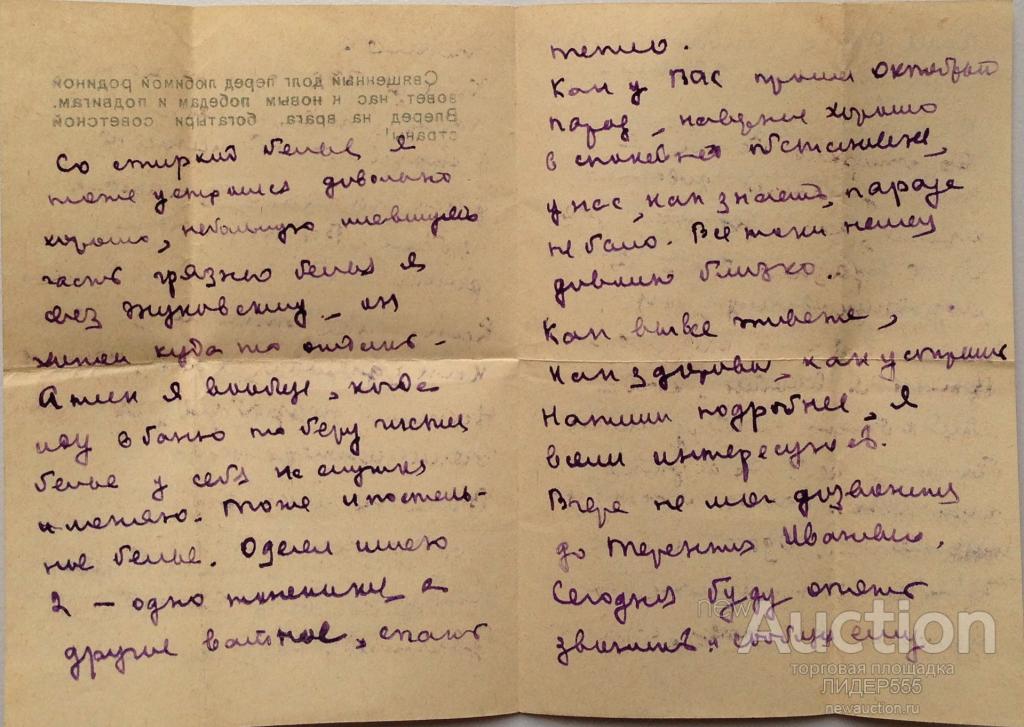 Священный долг перед любимой родиной
зовет нас к новым победам и подвигам.
Вперед на врага, богатыри советской
страны!
Со стиркой белья я
тоже устроился довольно
хорошо, небольшую
часть грязного белья я
Жуковскому, он
куда то
А так я вообще, когда
иду в баню то беру чистое
белье у себя на
меняю. Тоже и постель-
ное белье. Одеял имею
2 – одно а
другое ватное, спать
тепло.
Как у Вас прошел октябрьский
парад, наверное хорошо
в спокойной обстановке,
у нас, как знаете, парада
не было. Все таки немец
довольно близко.
Как вы все живете,
как здоровье, как
Напиши подробнее, я
всем интересуюсь.
Вчера не мог дозвониться
до Терентия Ивановича.
Сегодня буду опять
звонить и сообщу ему
newAuction
торговая площадка
ЛИДЕР555
newauction.ru